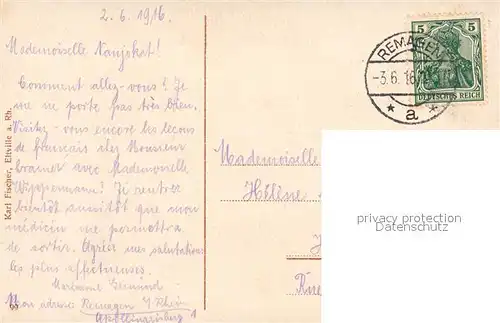 2. 6. 1916.
Mademoiselle Nanjokat!
Comment allez-vous? Je
me ne porte pas très bien.
Visitez-vous encore les leçons
de français chez Monsieur
avec Mademoiselle
Wippermann? Je rentrez
bientôt aussitôt que mon
médicin me permettra
de sortir. Agréez mes salutations
les plus affectueuses.
Marianne
Mon adresse: Remagen a/Rhein
1
Karl Fischer, Eltville a. Rh.
5 5
DEUTSCHES REICH
REMAGEN
-3.6.16
* a *
Mademoiselle
Hélène
Rue
privacy protection
Datenschutz